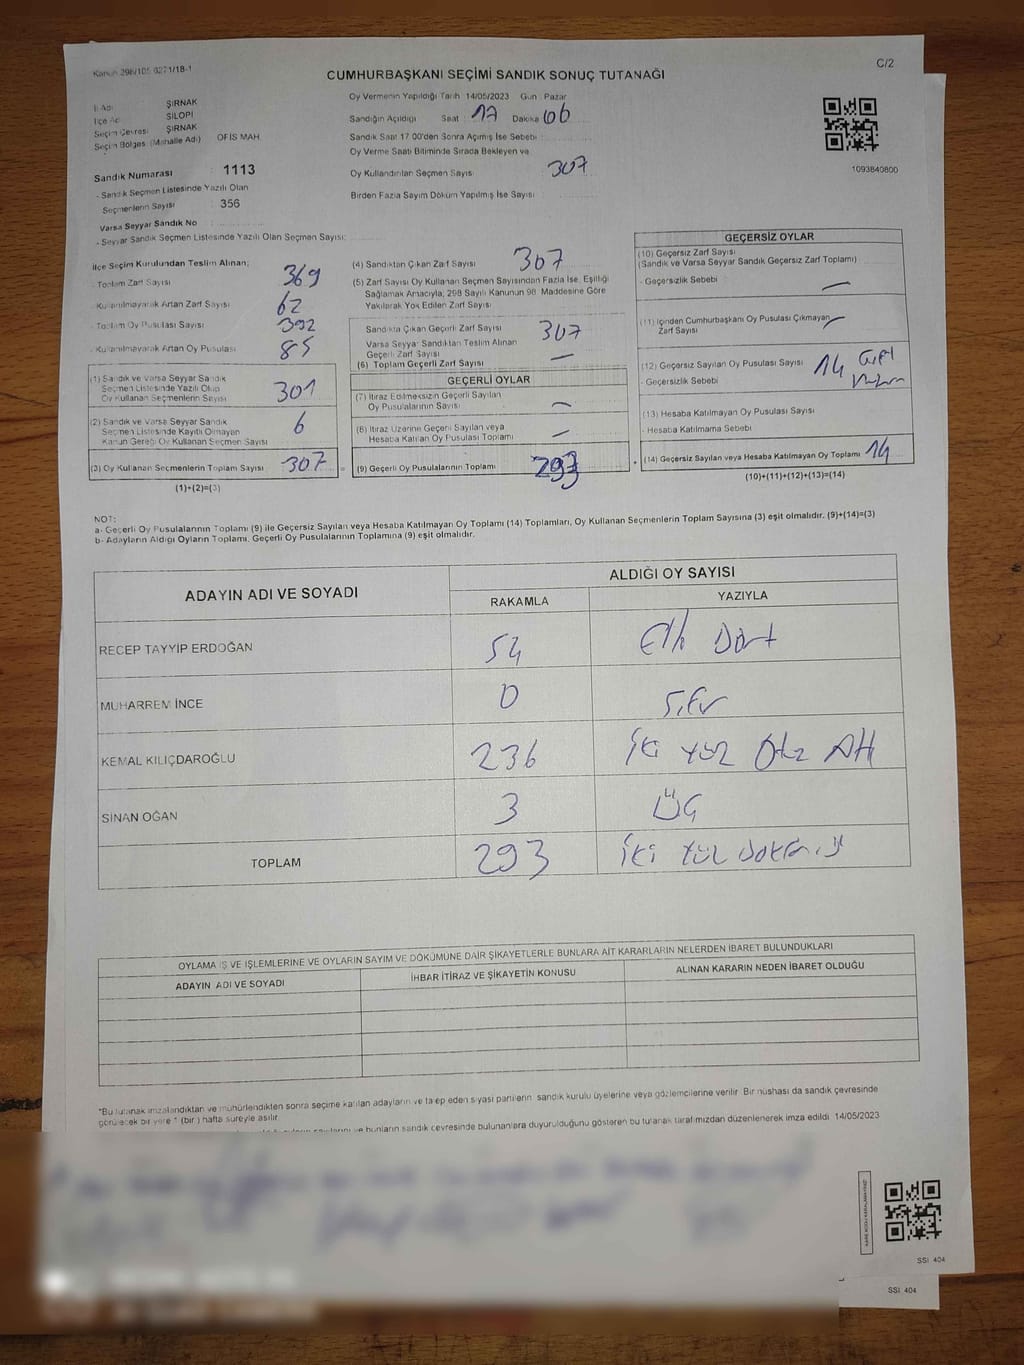 Kanun 298/105 6271/18-1
C/2
CUMHURBAŞKANI SEÇİMİ SANDIK SONUÇ TUTANAĞI
İl Adı ŞIRNAK
İlçe Adı SİLOPİ
Seçim Çevresi ŞIRNAK
Seçim Bölgesi (Mahalle Adı) OFİS MAH.
Sandık Numarası : 1113
- Sandık Seçmen Listesinde Yazılı Olan
Seçmenlerin Sayısı : 356
Varsa Seyyar Sandık No
- Seyyar Sandık Seçmen Listesinde Yazılı Olan Seçmen Sayısı:
Oy Vermenin Yapıldığı Tarih 14/05/2023 Gün Pazar
Sandığın Açıldığı Saat : 17 Dakika 06
Sandık Saat 17:00'den Sonra Açımış İse Sebebi :
Oy Verme Saati Bitiminde Sırada Bekleyen ve
Oy Kullandırılan Seçmen Sayısı 307
Birden Fazla Sayım Döküm Yapılmış İse Sayısı
1093840800
İlçe Seçim Kurulundan Teslim Alınan;
- Toplam Zarf Sayısı 369
- Kullanılmayarak Artan Zarf Sayısı 62
- Toplam Oy Pusulası Sayısı 392
- Kullanılmayarak Artan Oy Pusulası 85
(1) Sandık ve Varsa Seyyar Sandık
Seçmen Listesinde Yazılı Olup
Oy Kullanan Seçmenlerin Sayısı 301
(2) Sandık ve Varsa Seyyar Sandık
Seçmen Listesinde Kayıtlı Olmayan
Kanun Gereği Oy Kullanan Seçmen Sayısı 6
(3) Oy Kullanan Seçmenlerin Toplam Sayısı 307 =
(1)+(2)=(3)
(4) Sandıktan Çıkan Zarf Sayısı 307
(5) Zarf Sayısı Oy Kullanan Seçmen Sayısından Fazla İse, Eşitliği
Sağlamak Amacıyla; 298 Sayılı Kanunun 98. Maddesine Göre
Yakılarak Yok Edilen Zarf Sayısı
Sandıkta Çıkan Geçerli Zarf Sayısı 307
Varsa Seyyar Sandıktan Teslim Alınan
Geçerli Zarf Sayısı —
(6) Toplam Geçerli Zarf Sayısı
GEÇERLİ OYLAR
(7) İtiraz Edilmeksizin Geçerli Sayılan
Oy Pusulalarının Sayısı —
(8) İtiraz Üzerine Geçerli Sayılan veya
Hesaba Katılan Oy Pusulası Toplamı —
(9) Geçerli Oy Pusulalarının Toplamı 293 +
GEÇERSİZ OYLAR
(10) Geçersiz Zarf Sayısı
(Sandık ve Varsa Seyyar Sandık Geçersiz Zarf Toplamı)
- Geçersizlik Sebebi —
(11) İçinden Cumhurbaşkanı Oy Pusulası Çıkmayan
Zarf Sayısı —
(12) Geçersiz Sayılan Oy Pusulası Sayısı 14
Geçersizlik Sebebi
(13) Hesaba Katılmayan Oy Pusulası Sayısı
- Hesaba Katılmama Sebebi
(14) Geçersiz Sayılan veya Hesaba Katılmayan Oy Toplamı 14
(10)+(11)+(12)+(13)=(14)
NOT:
a- Geçerli Oy Pusulalarının Toplamı (9) ile Geçersiz Sayılan veya Hesaba Katılmayan Oy Toplamı (14) Toplamları, Oy Kullanan Seçmenlerin Toplam Sayısına (3) eşit olmalıdır. (9)+(14)=(3)
b- Adayların Aldığı Oyların Toplamı, Geçerli Oy Pusulalarının Toplamına (9) eşit olmalıdır.
ADAYIN ADI VE SOYADI
ALDIĞI OY SAYISI
RAKAMLA YAZIYLA
RECEP TAYYİP ERDOĞAN 54 Elli Dört
MUHARREM İNCE 0 Sıfır
KEMAL KILIÇDAROĞLU 236 İki Yüz Otuz Altı
SİNAN OĞAN 3 Üç
TOPLAM 293 İki Yüz
OYLAMA İŞ VE İŞLEMLERİNE VE OYLARIN SAYIM VE DÖKÜMÜNE DAİR ŞİKAYETLERLE BUNLARA AİT KARARLARIN NELERDEN İBARET BULUNDUKLARI
ADAYIN ADI VE SOYADI İHBAR İTİRAZ VE ŞİKAYETİN KONUSU ALINAN KARARIN NEDEN İBARET OLDUĞU
*Bu tutanak imzalandıktan ve mühürlendikten sonra seçime katılan adayların ve talep eden siyasi partilerin sandık kurulu üyelerine veya gözlemcilerine verilir. Bir nüshası da sandık çevresinde
görülecek bir yere 1 (bir) hafta süreyle asılır.
ve bunların sandık çevresinde bulunanlara duyurulduğunu gösteren bu tutanak tarafımızdan düzenlenerek imza edildi. 14/05/2023
SSI 404
SSI 404